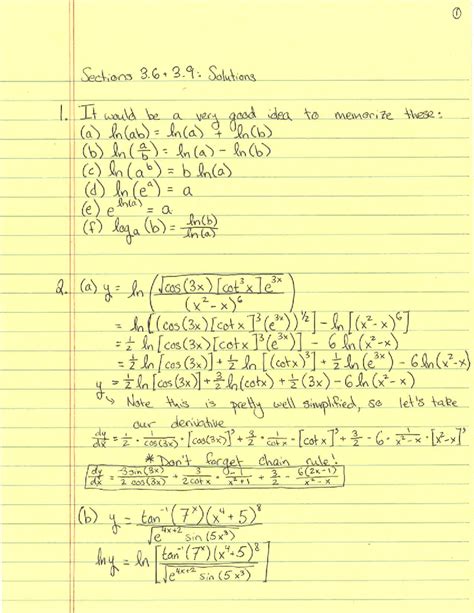 ①
Sections 3.6 + 3.9: Solutions
1. It would be a very good idea to memorize these:
(a) ln(ab) = ln(a) + ln(b)
(b) ln(a/b) = ln(a) - ln(b)
(c) ln(a^b) = b ln(a)
(d) ln(e^a) = a
(e) e^{ln(a)} = a
(f) log_a(b) = ln(b)/ln(a)
2. (a) y = ln(√(cos(3x)[cot^3 x]e^{3x}) / (x^2-x)^6)
= ln[(cos(3x)[cot x]^3(e^{3x}))^{1/2}] - ln[(x^2-x)^6]
= 1/2 ln[cos(3x)[cot x]^3(e^{3x})] - 6 ln(x^2-x)
= 1/2 ln[cos(3x)] + 1/2 ln[(cot x)^3] + 1/2 ln(e^{3x}) - 6 ln(x^2-x)
y = 1/2 ln[cos(3x)] + 3/2 ln(cot x) + 1/2 (3x) - 6 ln(x^2-x)
↳ Note this is pretty well simplified, so let's take
our derivative
dy/dx = 1/2 · 1/cos(3x) · [cos(3x)]' + 3/2 · 1/cot x · [cot x]' + 3/2 - 6 · 1/(x^2-x) · [x^2-x]'
* Don't forget chain rule!
dy/dx = -3 sin(3x)/(2 cos(3x)) + 3/(2 cot x) · -1/(x^2+1) + 3/2 - 6(2x-1)/(x^2-x)
(b) y = tan^{-1}(7^x)(x^4+5)^8 / (√(e^{4x+2}) sin(5x^3))
ln y = ln[tan^{-1}(7^x)(x^4+5)^8 / (√(e^{4x+2}) sin(5x^3))]